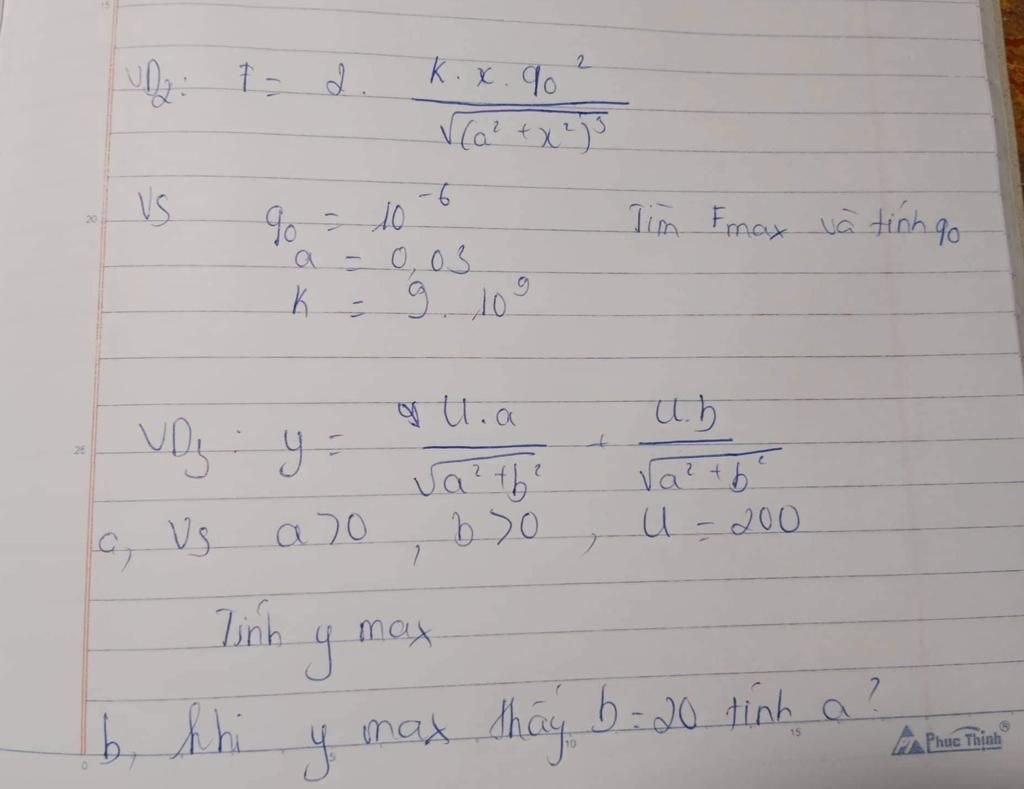 VD2: F = 2. K.x.q0² / √(a²+x²)³
VS q0 = 10⁻⁶ Tìm Fmax và tính q0
a = 0,03
K = 9.10⁹
VD3: y = U.a / √a²+b² + U.b / √a²+b²
a, Vs a>0, b>0, U=200
Tính y max
b, khi y max thấy b=20 tính a?
Phuc Thinh®
20
25
0
5
10
15